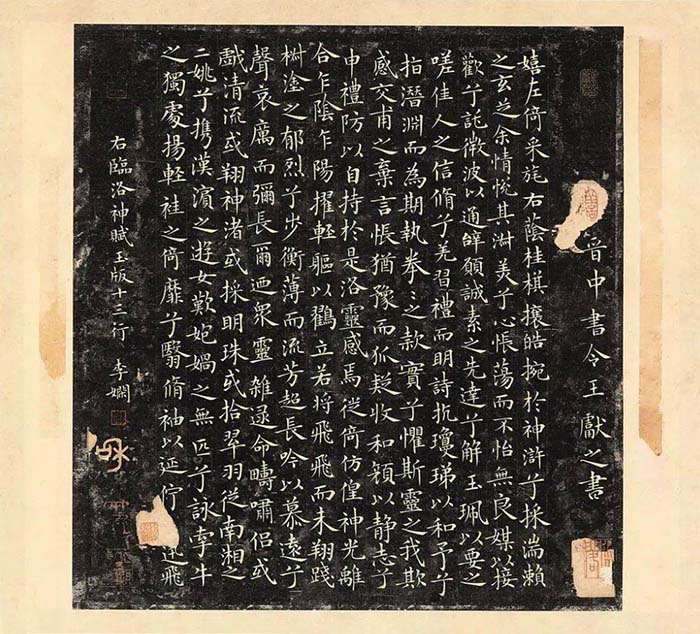 晋中書令王獻之書
嬉左倚采旄右蔭桂棋攘皓捥於神滸兮採湍瀨
之玄芝余情悅其淑美兮心悵蕩而不怡無良媒以接
歡兮託微波以通辭願誠素之先達兮解玉珮以要之
嗟佳人之信脩兮羌習禮而明詩抗瓊珶以和予兮
指潛淵而為期執拳〻之款實兮懼斯靈之我欺
感交甫之棄言悵猶豫而狐疑收和顏以静志兮
申禮防以自持於是洛靈感焉徙倚仿偟神光離
合乍陰乍陽擢輕軀以鶴立若將飛飛而未翔踐
椒塗之郁烈兮步衡薄而流芳超長吟以慕遠兮
聲哀厲而彌長爾迺衆靈雜遝命疇嘯侶或
戲清流或翔神渚或採明珠或拾翠羽從南湘之
二姚兮攜漢濱之遊女歎妑媧之無匹兮詠牽牛
之獨處揚輕袿之倚靡兮翳脩袖以延佇飛
右臨洛神賦玉版十三行 李嫻